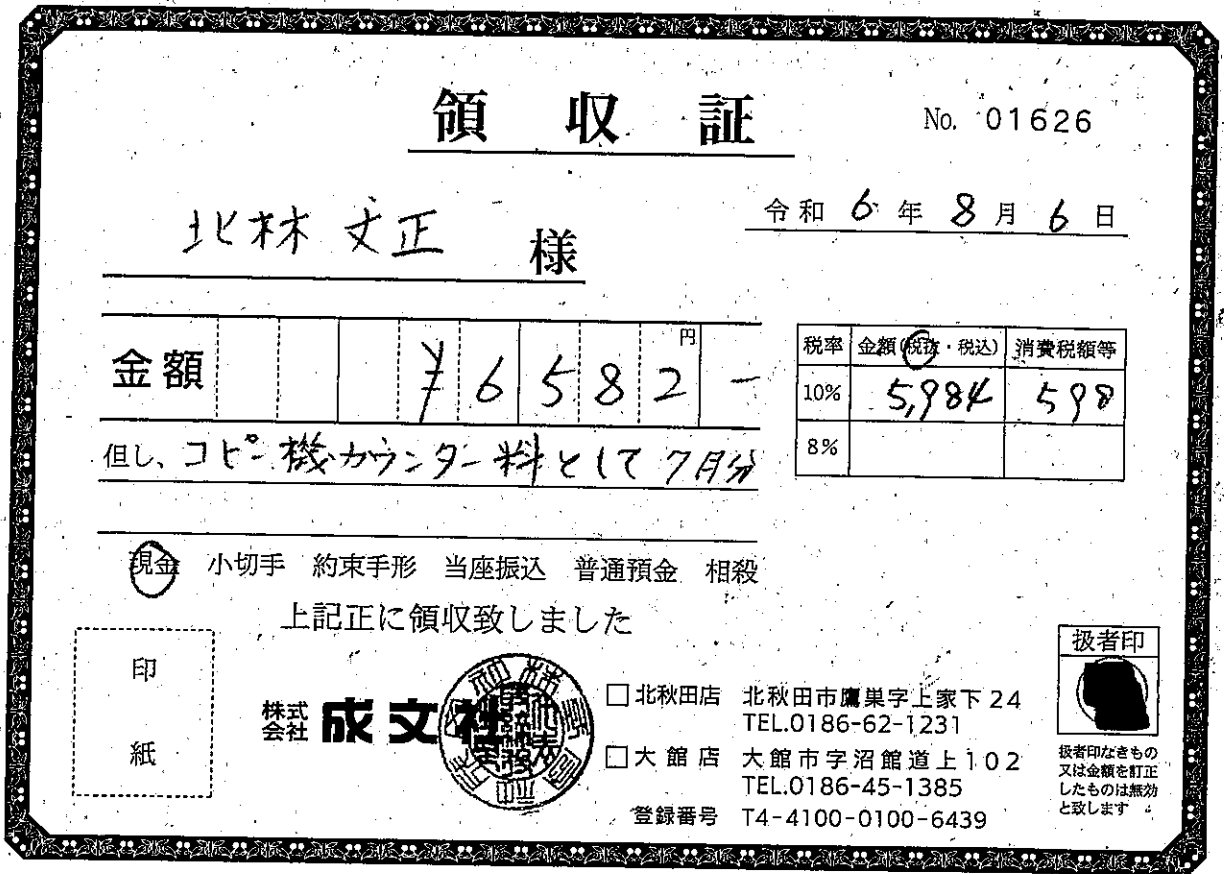 領収証
No. 01626
令和 6 年 8 月 6 日
北林 文正 様
金額 ¥6582- 円
税率 金額(税抜・税込) 消費税額等
10% 5,984 598
8%
但し、コピー機カウンター料として 7月分
現金 小切手 約束手形 当座振込 普通預金 相殺
上記正に領収致しました
印紙
株式会社 成文社
□北秋田店 北秋田市鷹巣字上家下24
TEL.0186-62-1231
□大館店 大館市字沼館道上102
TEL.0186-45-1385
登録番号 T4-4100-0100-6439
扱者印
扱者印なきもの
又は金額を訂正
したものは無効
と致します